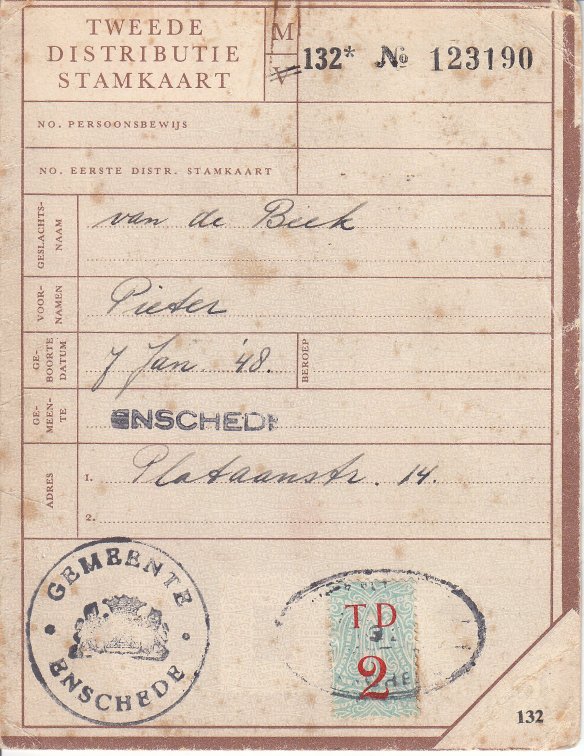 TWEEDE
DISTRIBUTIE
STAMKAART
M
V
132* No 123190
NO. PERSOONSBEWIJS
NO. EERSTE DISTR. STAMKAART
GESLACHTS-
NAAM
van de Beek
VOOR-
NAMEN
Pieter
GE-
BOORTE
DATUM
7 Jan. '48.
BEROEP
GE-
MEEN-
TE
ENSCHEDE
ADRES
1. Plataanstr. 14.
2.
GEMEENTE
ENSCHEDE
TD
2
132